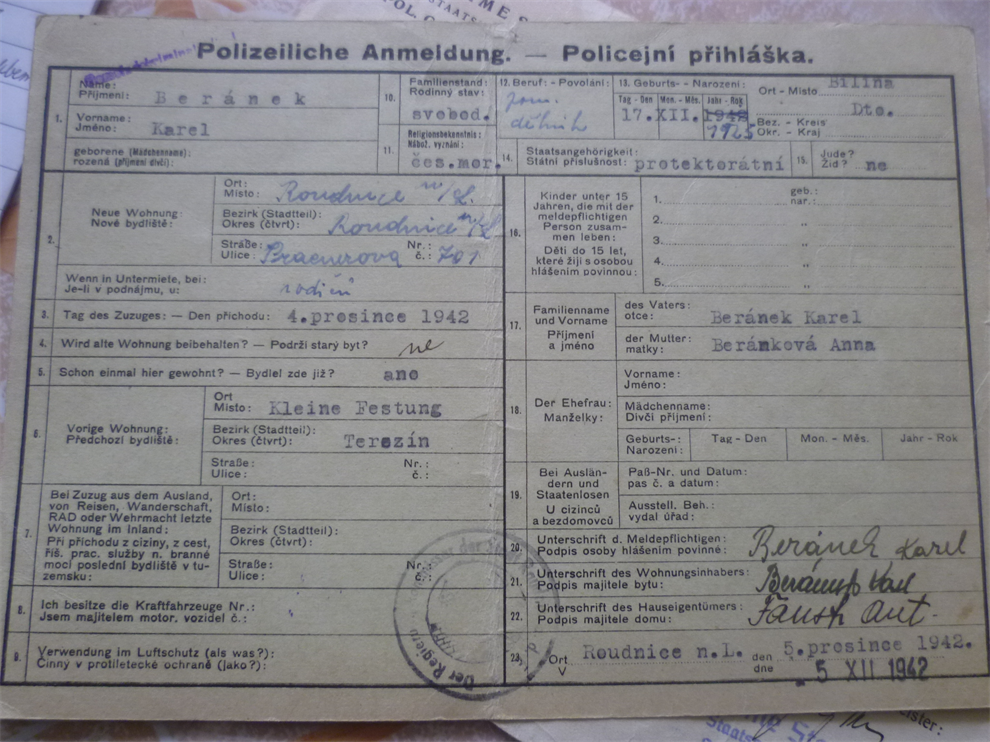 Polizeiliche Anmeldung. — Policejní přihláška.
1.
Name:
Příjmení: Beránek
Vorname:
Jméno: Karel
geborene (Mädchenname):
rozená (příjmení dívčí):
10.
Familienstand:
Rodinný stav:
svobod.
11.
Religionsbekenntnis:
Nábož. vyznání:
čes.mor.
12. Beruf: - Povolání:
pom.
dělník
13. Geburts- - Narození:
Tag - Den Mon. - Měs. Jahr - Rok
17. XII. 1942
1925
Ort - Místo Bílina
Bez. - Kreis
Okr. - Kraj
Dto.
14.
Staatsangehörigkeit:
Státní příslušnost: protektorátní
15.
Jude?
Žid? ne
2.
Neue Wohnung:
Nové bydliště:
Ort:
Místo: Roudnice n/L.
Bezirk (Stadtteil):
Okres (čtvrť): Roudnice n/L
Straße:
Ulice:
Nr.:
č.: 701
Wenn in Untermiete, bei:
Je-li v podnájmu, u: rodičů
3. Tag des Zuzuges: — Den příchodu: 4.prosince 1942
4. Wird alte Wohnung beibehalten? — Podrží starý byt? ne
5. Schon einmal hier gewohnt? — Bydlel zde již? ano
6.
Vorige Wohnung:
Předchozí bydliště:
Ort
Místo: Kleine Festung
Bezirk (Stadtteil):
Okres (čtvrť): Terezín
Straße: Nr.:
Ulice: č.:
7.
Bei Zuzug aus dem Ausland,
von Reisen, Wanderschaft,
RAD oder Wehrmacht letzte
Wohnung im Inland:
Při příchodu z ciziny, z cest,
říš. prac. služby n. branné
moci poslední bydliště v tu-
zemsku:
Ort:
Místo:
Bezirk (Stadtteil):
Okres (čtvrť):
Straße: Nr.:
Ulice: č.:
8.
Ich besitze die Kraftfahrzeuge Nr.:
Jsem majitelem motor. vozidel č.:
9.
Verwendung im Luftschutz (als was?):
Činný v protiletecké ochraně (jako?):
16.
Kinder unter 15
Jahren, die mit der
meldepflichtigen
Person zusam-
men leben:
Děti do 15 let,
které žijí s osobou
hlášením povinnou:
1. geb.:
nar.:
2. „
3. „
4. „
5. „
17.
Familienname
und Vorname
Příjmení
a jméno
des Vaters:
otce: Beránek Karel
der Mutter:
matky: Beránková Anna
18.
Der Ehefrau:
Manželky:
Vorname:
Jméno:
Mädchenname:
Dívčí příjmení:
Geburts-:
Narození:
Tag - Den Mon. - Měs. Jahr - Rok
19.
Bei Auslän-
dern und
Staatenlosen
U cizinců
a bezdomovců
Paß-Nr. und Datum:
pas č. a datum:
Ausstell. Beh.:
vydal úřad:
20.
Unterschrift d. Meldepflichtigen:
Podpis osoby hlášením povinné: Beránek Karel
21.
Unterschrift des Wohnungsinhabers:
Podpis majitele bytu: Beránek Karel
22.
Unterschrift des Hauseigentümers:
Podpis majitele domu:
23.
Ort
V Roudnice n.L. den
dne 5.prosince 1942.
5 XII 1942
Der Regier